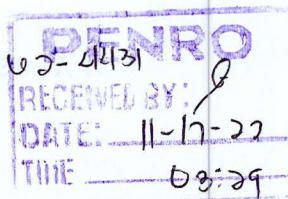 PENRO
02-4431
RECEIVED BY:
DATE: 11-17-22
TIME 03:29